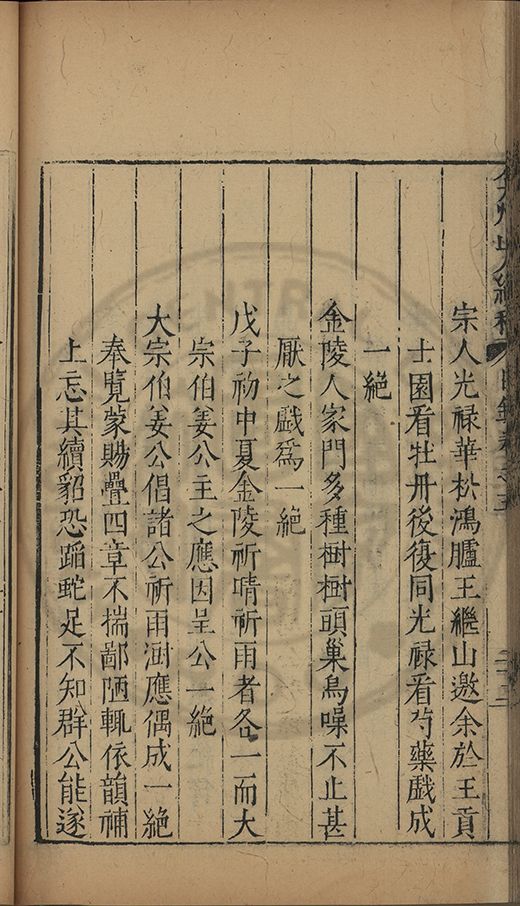 宗人光祿華松鴻臚王繼山邀余於王貢
士園看牡丹後復同光祿看芍藥戲成
一絕
金陵人家門多種樹樹頭巢鳥噪不止甚
厭之戲爲一絕
戊子初中夏金陵祈晴祈雨者各一而大
宗伯姜公主之應因呈公一絕
大宗伯姜公倡諸公祈雨澍應偶成一絕
奉覽蒙賜疊四章不揣鄙陋輒依韻補
上忘其續貂恐蹈蛇足不知群公能遂